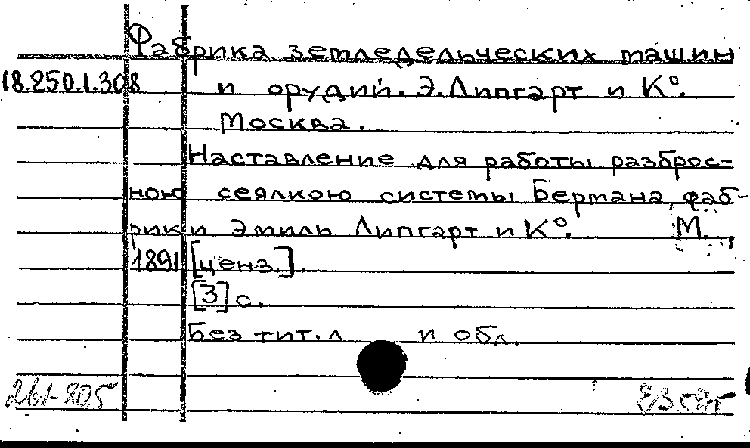 Фабрика земледельческих машин
18.250.1.308 и орудий. Э. Липгарт и К°.
Москва.
Наставление для работы разброс-
ною сеялкою системы Бермана, фаб-
рики Эмиль Липгарт и К°. М.,
1891 [ценз.].
[3] с.
Без тит. л. и обл.
261-805